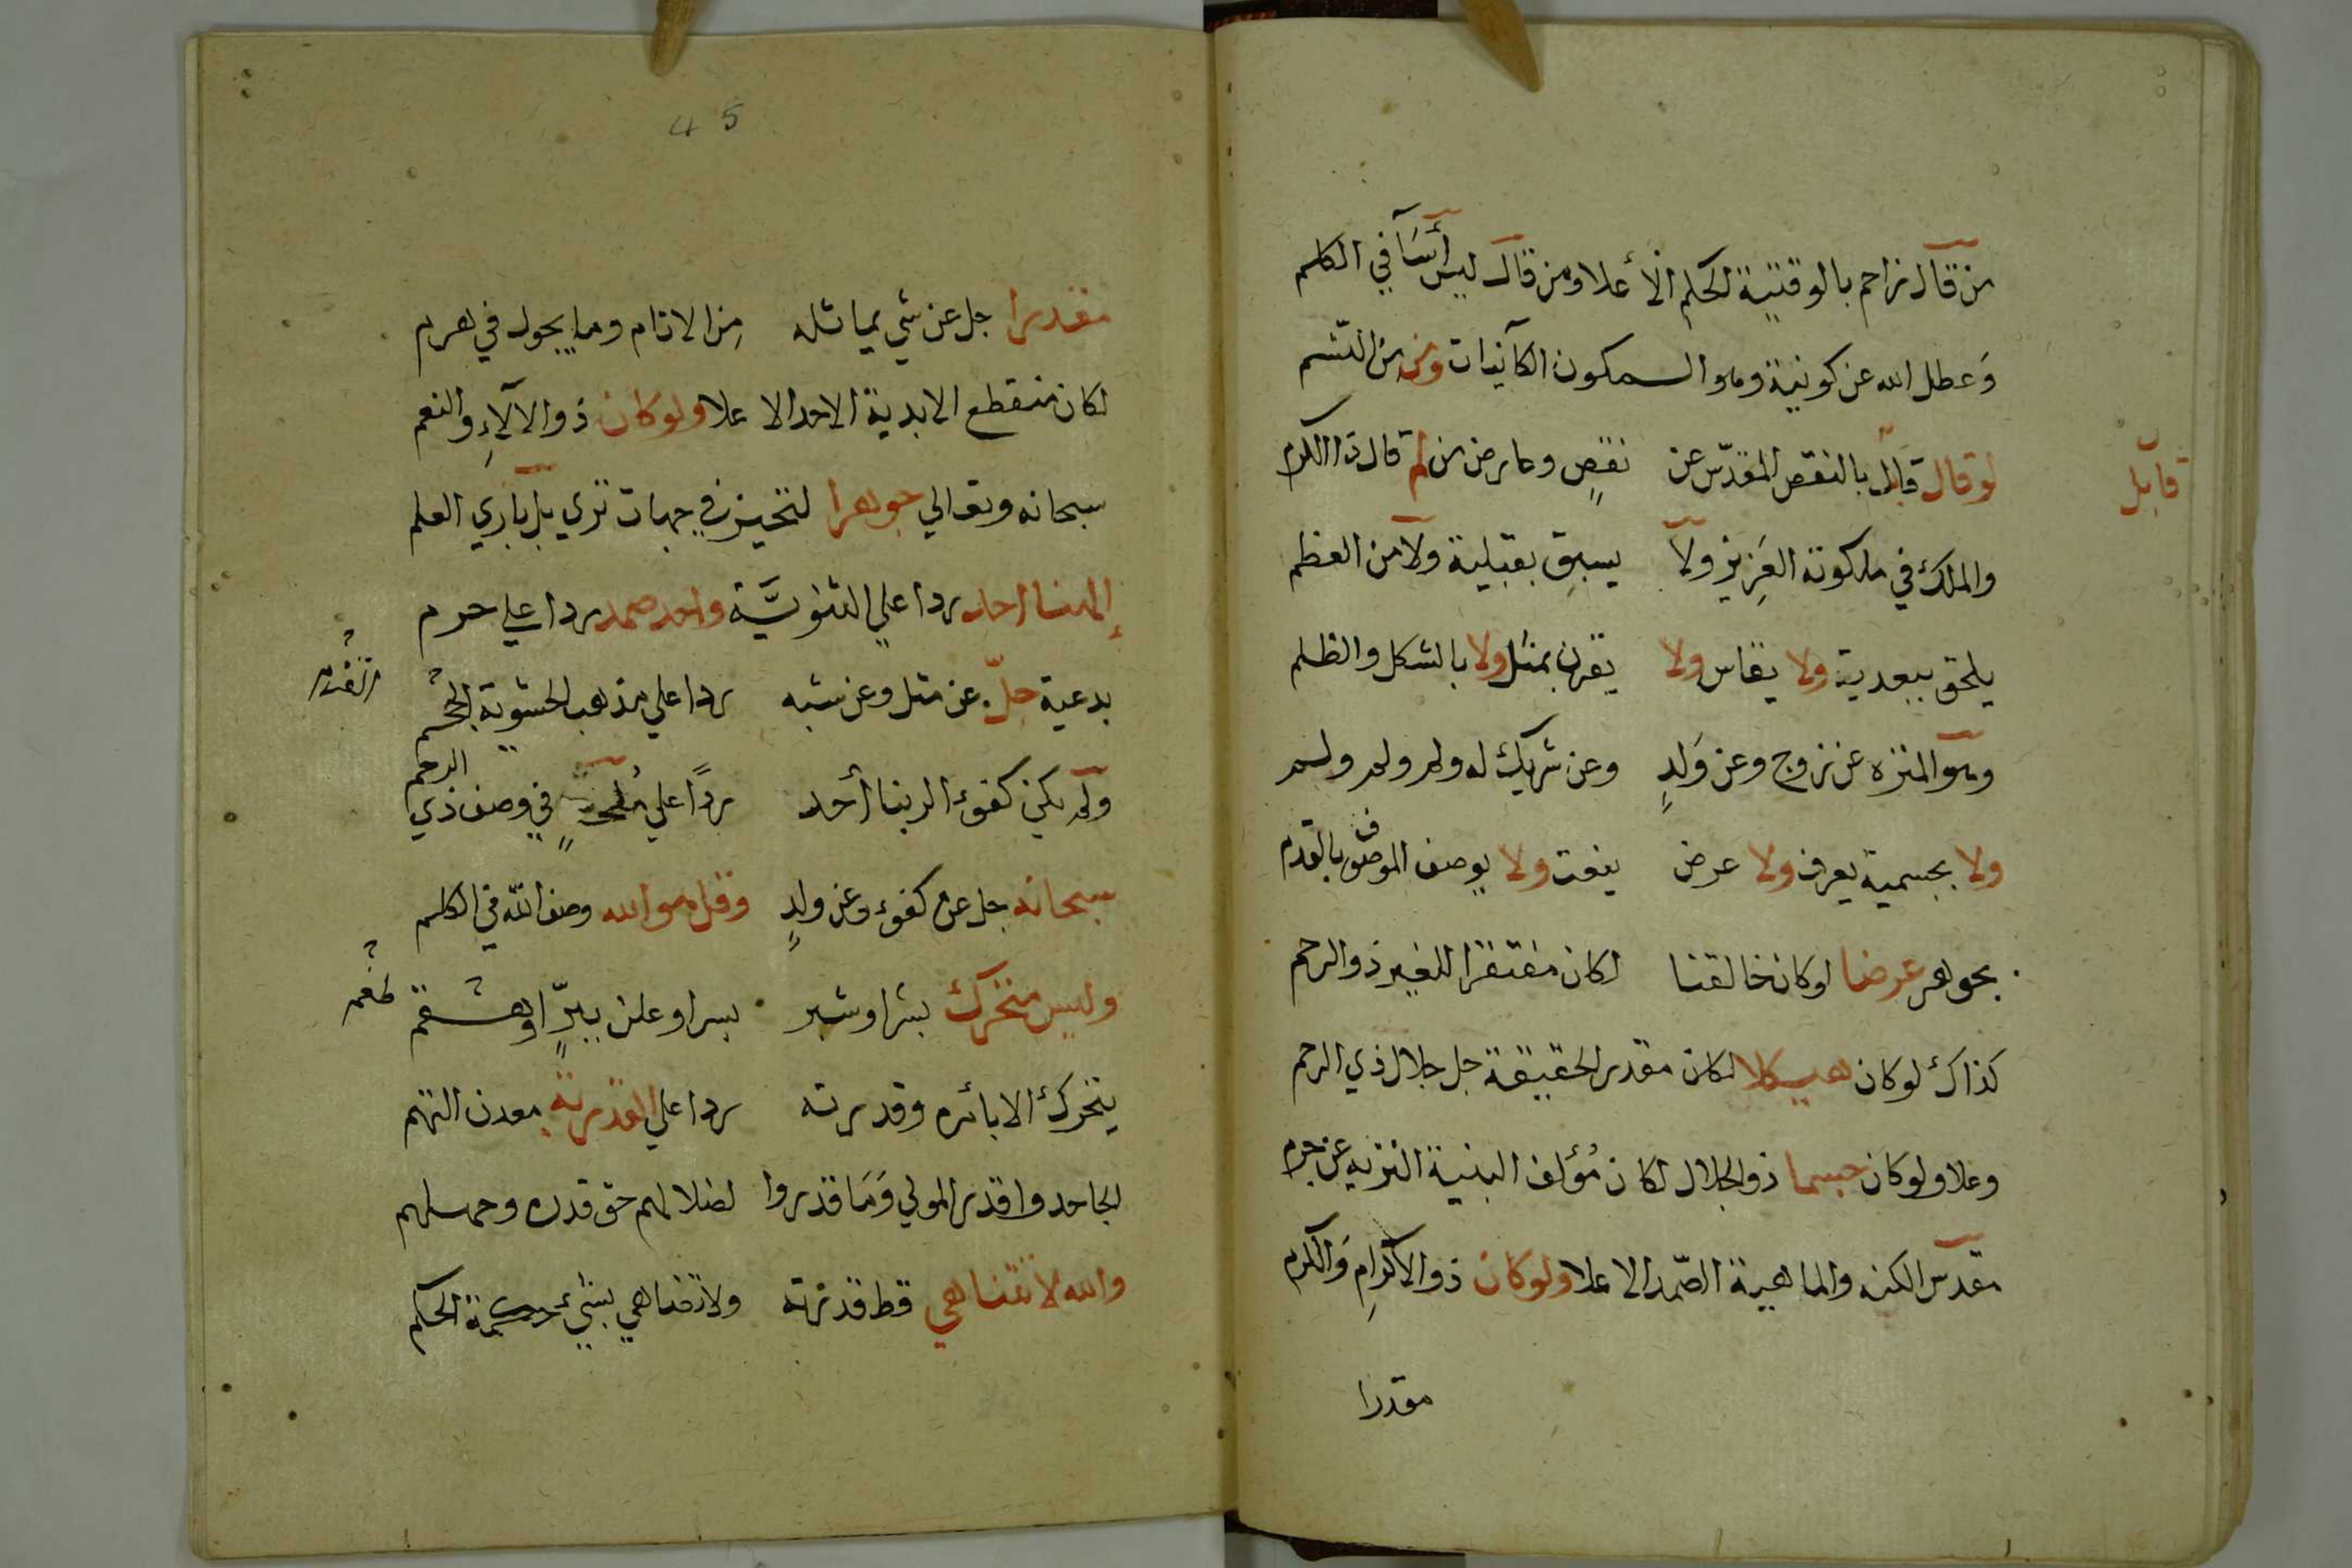 من قال زاحم بالوقتية الحكم الأعلا ومن قال ليس أيسا في الكلم
وعطل الله عن كونية وهو المكون الكائنات ومن من النسم
قائل
لو قال قائل بالنقص المقدس عن نقص وعارض من لم قال ذا الكلم
والملك في ملكوته العزيز ولا يسبق بقبلية ولا من العظم
يلحق ببعدية ولا يقاس ولا يقرن بمثل ولا بالشكل والظلم
وهو المنزه عن زوج وعن ولد وعن شريك له ولم ولم ولم
ولا بجسمية يعرف ولا عرض ينعت ولا يوصف الموصوف بالقدم
بجوهر عرضا لو كان خالقنا لكان مفتقرا للغير ذو الرحم
كذاك لو كان هيكلا لكان مقدر الحقيقة جل جلال ذي الرحم
وعلا ولو كان جسما ذو الجلال لكان مؤلف البنية النزيه عن جرم
مقدس الكنه والماهية الصمد الاعلا ولو كان ذو الاكرام والكرم
مقدرا
45
مقدرا جل عن شي يماثله من الانام وما يجول في هرم
لكان منقطع الابدية الاحد الاعلا ولو كان ذو الالآء والنعم
سبحانه وتعالي جوهرا لتحيز في جهات تري بل باري العلم
إلهنا احد ردا علي الثنوية واحد صمد ردا علي حرم
بدعية جل عن مثل وعن شبه ردا علي مذهب الحشوية
ولم يكن كفوء الربنا أحد ردا علي ملحد في وصف ذي الرحم
سبحانه جل عن كفوء وعن ولد وقل هو الله وصف الله في الكلم
وليس متحرك بشرا وشر بسر او علن ببر او
يتحرك الا بائره وقدرته ردا علي القدرية معدن التهم
الجاحدوا قدر المولي وما قدروا لضلالهم حق قدره وجهلهم
والله لا تتناهي قط قدرته ولا تتناهي بشيء حكمة الحكم